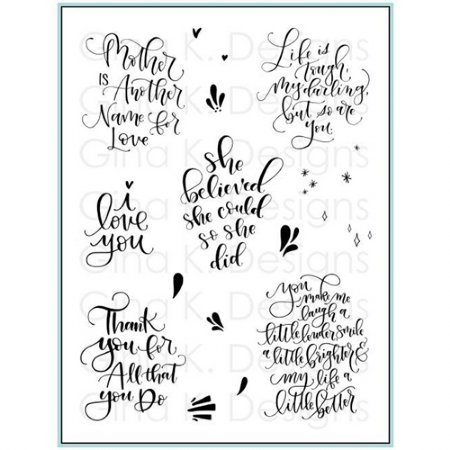 Mother
is Another
Name for
Love
Life is
tough,
my darling,
but so are
you.
she
believed
she could
so she
did
i
love
you
Thank
you for
All that
you Do
you
make me
laugh a
little louder smile
a little brighter &
my life a
little better
Gina K. Designs
Gina K. Designs
Gina K. Designs
Gina K. Designs
Gina K. Designs